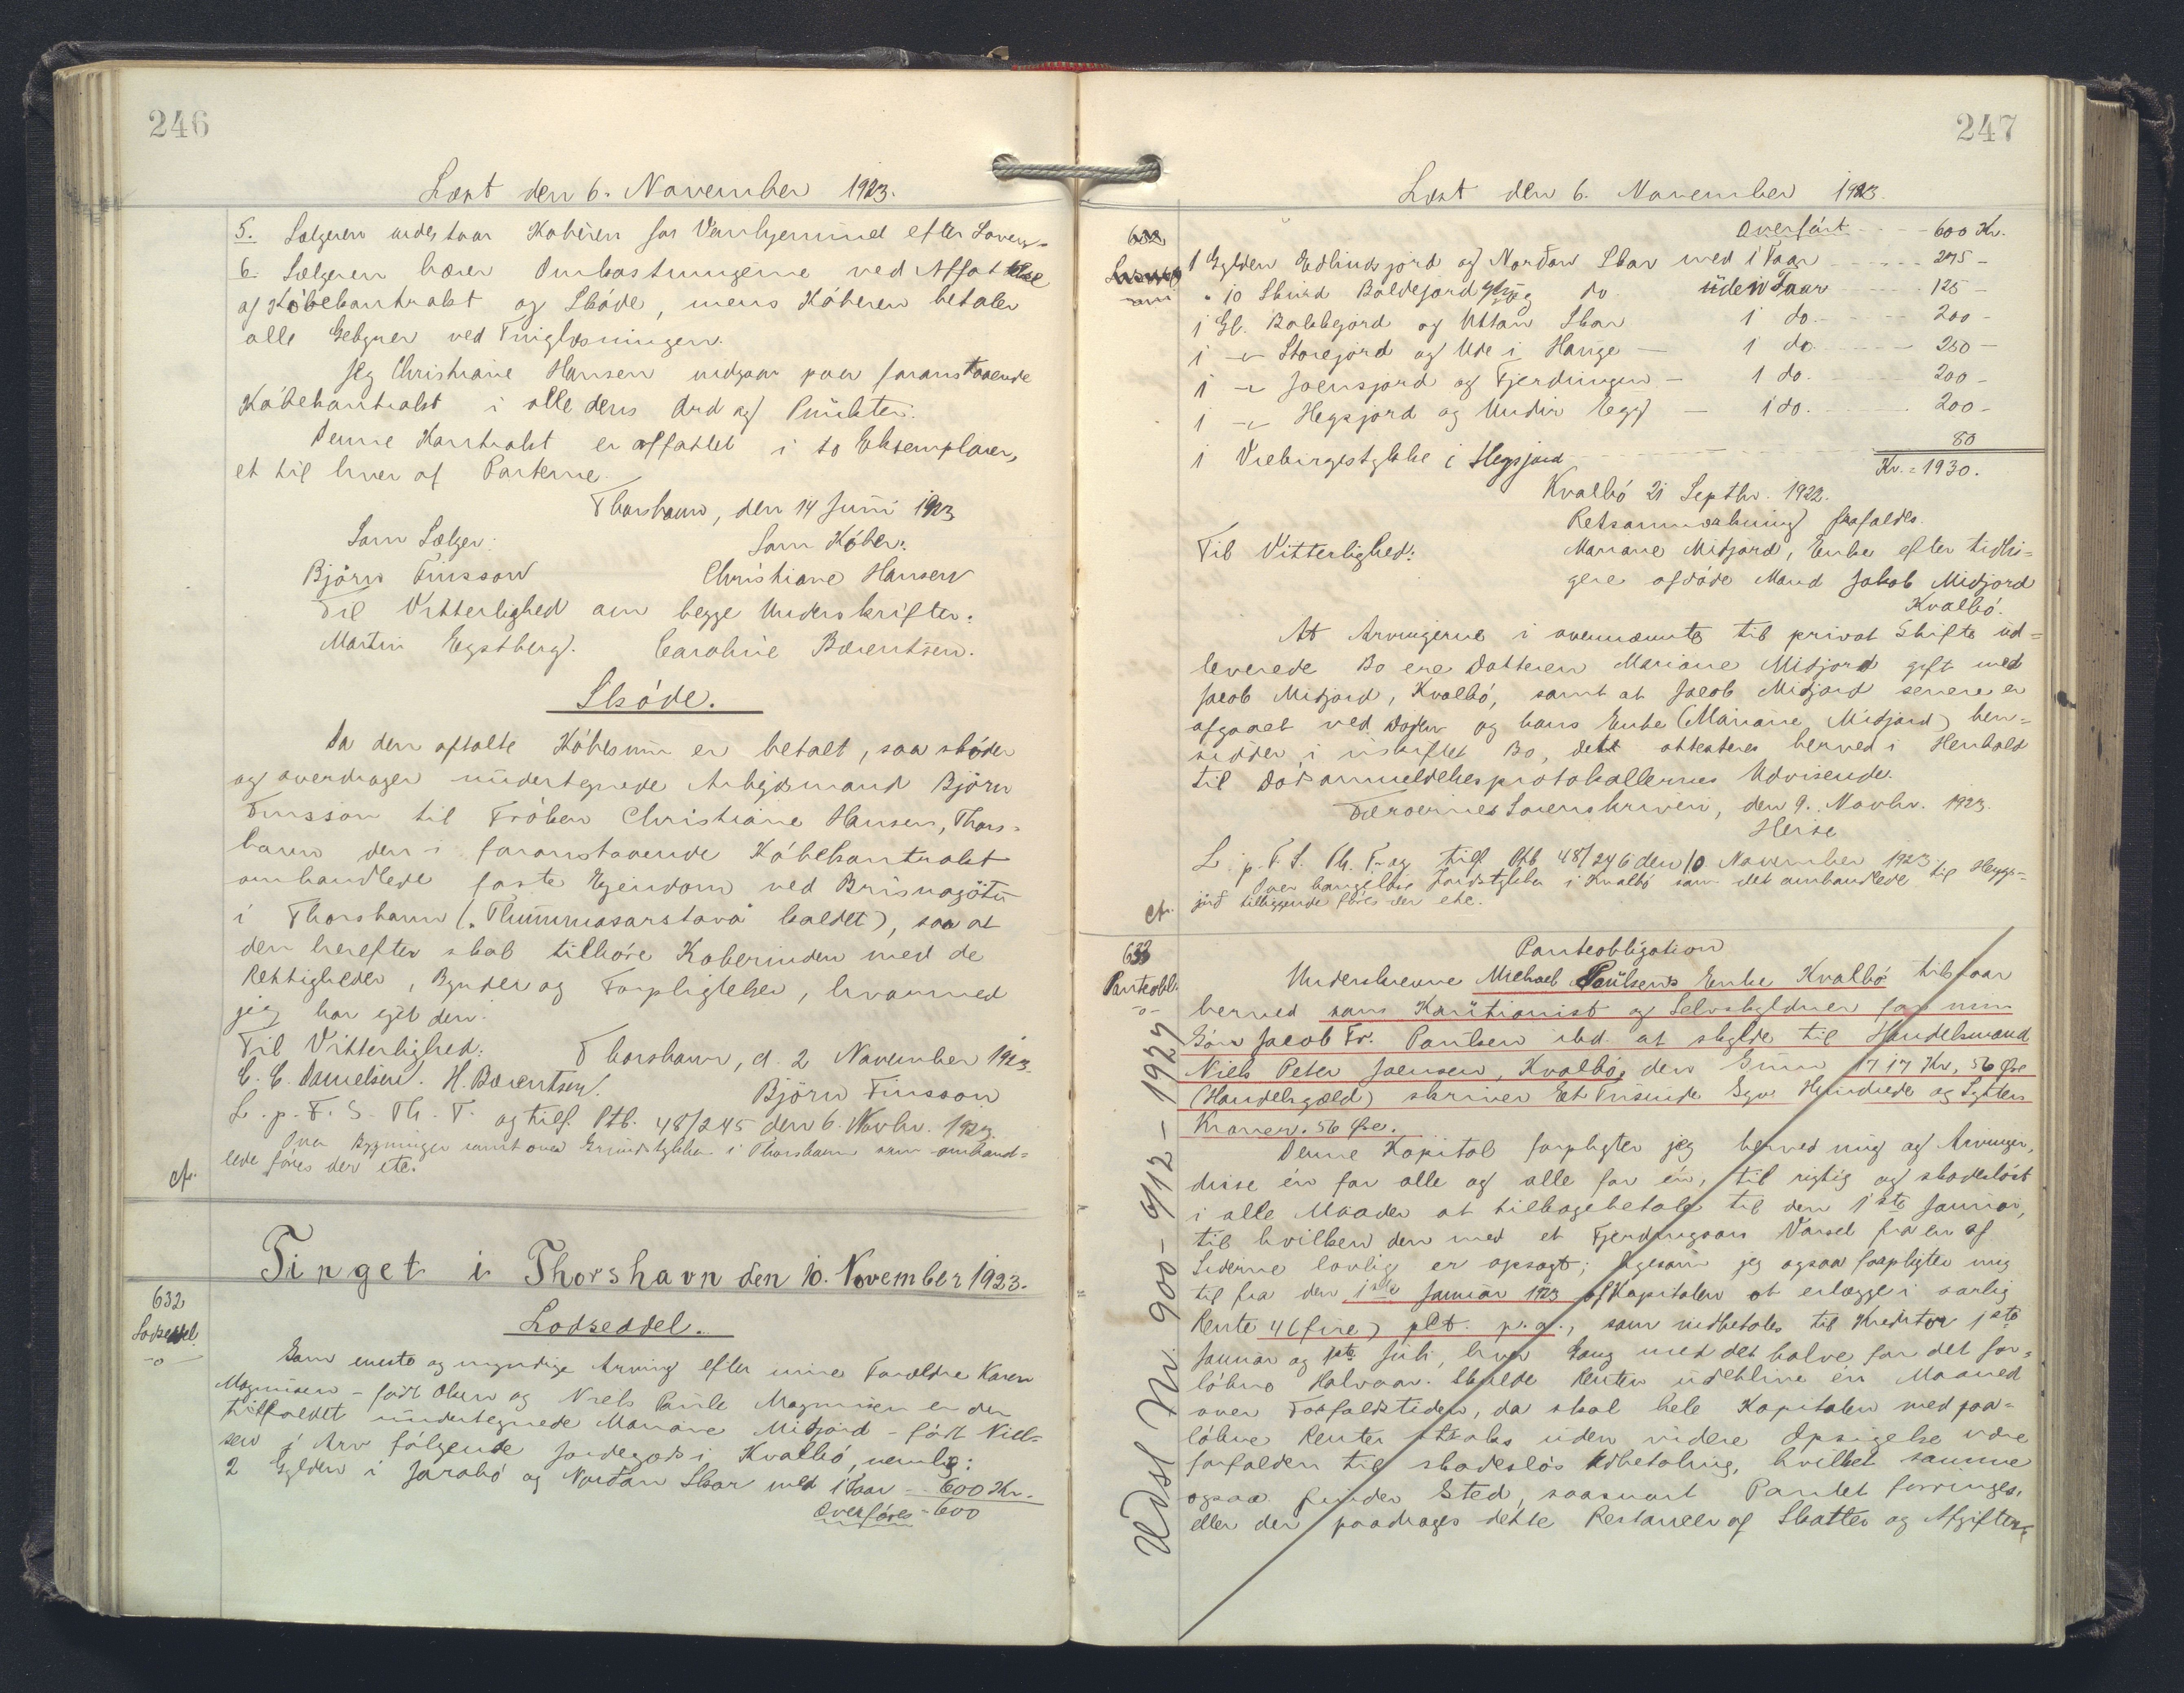 246
Læst den 6. November 1923.
5. Sælgeren indestaar Köberen for Vanhjemmel efter Loven.
6. Sælgeren bærer Omkostningerne ved Affattelse
af Köbekontrakt og Sköde, mens Köberen betaler
alle Gebyrer ved Tinglæsningen.
Jeg Christiane Hansen indgaar paa foranstaaende
Köbekontrakt i alle dens Ord og Punkter.
Denne Kontrakt er affattet i to Eksemplarer,
et til hver af Parterne.
Thorshavn, den 14 Juni 1923
Som Sælger: Som Köber:
Björn Finsson Christiane Hansen
Til Vitterlighed om begge Underskrifter:
Martin Egstberg. Caroline Bærentsen.
Sköde.
Da den aftalte Köbesum er betalt, saa sköder
og overdrager undertegnede Arbejdsmand Björn
Finsson til Fröken Christiane Hansen, Thors-
havn den i foranstaaende Köbekontrakt
omhandlede faste Ejendom ved Brisnagötu
i Thorshavn ("Thummasarstova" kaldet), saa at
den herefter skal tilhöre Köberinden med de
Rettigheder, Byrder og Forpligtelser, hvormed
jeg har ejet den.
Til Vitterlighed: Thorshavn, d. 2 November 1923.
C. C. Danielsen. H. Bærentsen. Björn Finsson
L. p. F. S. Th. T. og tilf. Ptb. 48/245 den 6. Novbr. 1923.
Over Bygninger samt over Grundstykker i Thorshavn som omhand-
lede föres der etc.
cfr.
Tinget i Thorshavn den 10. November 1923.
632
Lodseddel
-o-
Lodseddel.
Som eneste og myndige Arving efter mine Forældre Karen
Magnussen - födt Olsen og Niels Poule Magnussen er der
tilfaldet undertegnede Mariane Midjord - födt Niel-
sen i Arv fölgende Jordegods i Kvalbö, nemlig:
2 Gylden i Jarabö og Nordan Skar med 1 Faar - 600 Kr.
Overföres - 600
247
Læst den 6. November 1923.
632
Overfört - - - 600 Kr.
1 Gylden Edlindsjord og Nordan Skar med 1 Faar - - - 275 -
" 10 Skind Boldejord do uden Faar - - - 125 -
1 Gl. Bakkejord og Uttan Skar 1 do. - - - 200 -
1 -"- Storejord og Ude i Hauge - 1 do - - - 250 -
1 -"- Joensjord og Fjerdingen - 1 do. - - - 200 -
1 -"- Hegsjord og Undir Egg - 1 do. - - - 200 -
1 Viebirgestykke i Hegsjord - - - 80
Kr. = 1930.
Kvalbö 21 Septbr. 1922.
Retsanmærkning frafaldes.
Til Vitterlighed: Mariane Midjord, Enke efter tidli-
gere afdöde Mand Jakob Midjord
Kvalbö.
At Arvingerne i ovennævnte til privat Skifte ud-
leverede Bo ere Datteren Mariane Midjord gift med
Jacob Midjord, Kvalbö, samt at Jacob Midjord senere er
afgaaet ved Döden og hans Enke (Mariane Midjord) hen-
sidder i uskiftet Bo, dett attesteres herved i Henhold
til Dödsanmeldelsesprotokollernes Udvisende.
Færoernes Sorenskriveri, den 9. Novbr. 1923.
Heise
L. p. F. S. Th. T. og tilf. Ptb 48/246 den 10 November 1923
Over Jordstykker i Kvalbö som det omhandlede til Heggs-
jord tilliggende föres der etc.
cfr.
633
Panteobl.
-o-
Panteobligation
Underskrevne Michael Poulsens Enke Kvalbö tilstaar
herved som Kautionist og Selvskyldner for min
Sön Jacob Fr. Poulsen ibd. at skylde til Handelsmand
Niels Peter Joensen, Kvalbö, den Sum 1717 Kr, 56 Öre
(Handelsgæld) skriver Et Tusinde Syv Hundrede og Sytten
Kroner. 56 Öre.
Denne Kapital forpligter jeg herved mig og Arvinger,
disse én for alle og alle for én, til rigtig og skadeslöst
i alle Maader at tilbagebetale til den 1ste Januar,
til hvilken den med et Fjerdingaars Varsel fra en af
Siderne lovlig er opsagt; ligesom jeg ogsaa forpligter mig
til fra den 1ste Januar 1923 af Kapitalen at erlægge i aarlig
Rente 4 (fire) pCt. p. a., som indbetales til Kreditor 1ste
Januar og 1ste Juli, hver Gang med det halve for det for-
löbne Halvaar. Skulde Renten udeblive én Maaned
over Forfaldstiden, da skal hele Kapitalen med paa-
löbne Renter straks uden videre Opsigelse være
forfalden til skadeslös Udbetaling, hvilket samme
ogsaa finder Sted, saasnart Pantet forringes,
eller der paadrages dette Restancer af Skatter og Afgifter,
Udsl Nr. 900 - 9/12 - 1927